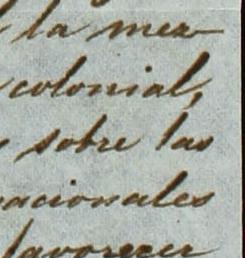 la mez
colonial,
sobre las
nacionales
favorecer